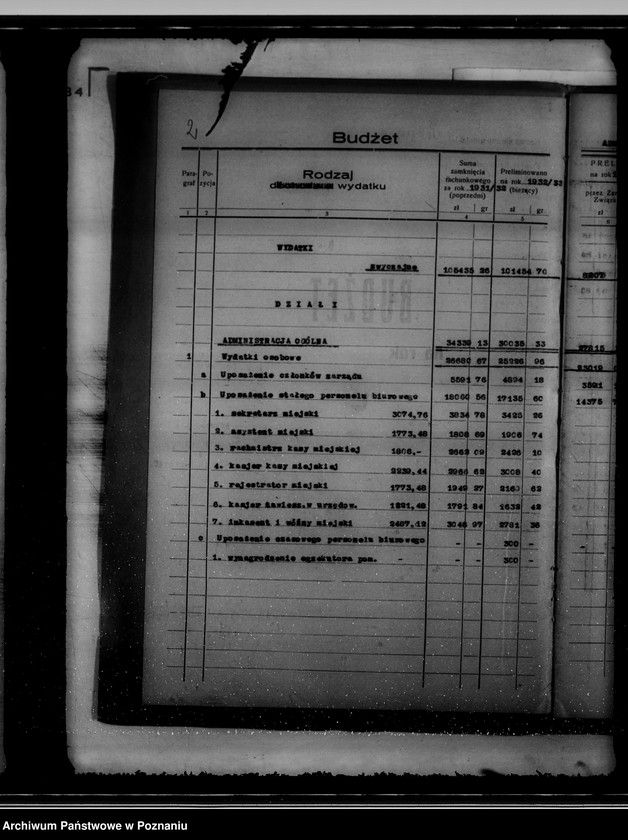 2
Budżet
Para-
graf
Po-
zycja
Rodzaj
wydatku
Suma
zamknięcia
rachunkowego
za rok 1931/32
(poprzedni)
zł gr
Preliminowano
na rok 1932/33
(bieżący)
zł gr
1 2 3 4 5
WYDATKI
zwyczajne 105435 26 101454 70
DZIAŁ I
ADMINISTRACJA OGÓLNA 34339 13 30035 33
1 Wydatki osobowe 26680 67 25226 96
a Uposażenie członków zarządu 5591 76 4894 18
b Uposażenie stałego personelu biurowego 18060 56 17135 60
1. sekretarz miejski 3074,76 3834 78 3425 26
2. asystent miejski 1773,48 1808 69 1906 74
3. rachmistrz kasy miejskiej 1806,- 2662 09 2426 10
4. kasjer kasy miejskiej 2239,44 2966 62 3008 40
5. rejestrator miejski 1773,48 1949 27 2160 62
6. kasjer zawiesz.w urzędow. 1221,48 1791 84 1632 48
7. inkasent i woźny miejski 2487,12 3046 97 2781 36
c Uposażenie czasowego personelu biurowego - - 300 -
1. wynagrodzenie egzekutora pom. - - - 300 -
PREL
na rok
przez Za
Związk
zł
6
27815
23012
3591
14375
Archiwum Państwowe w Poznaniu